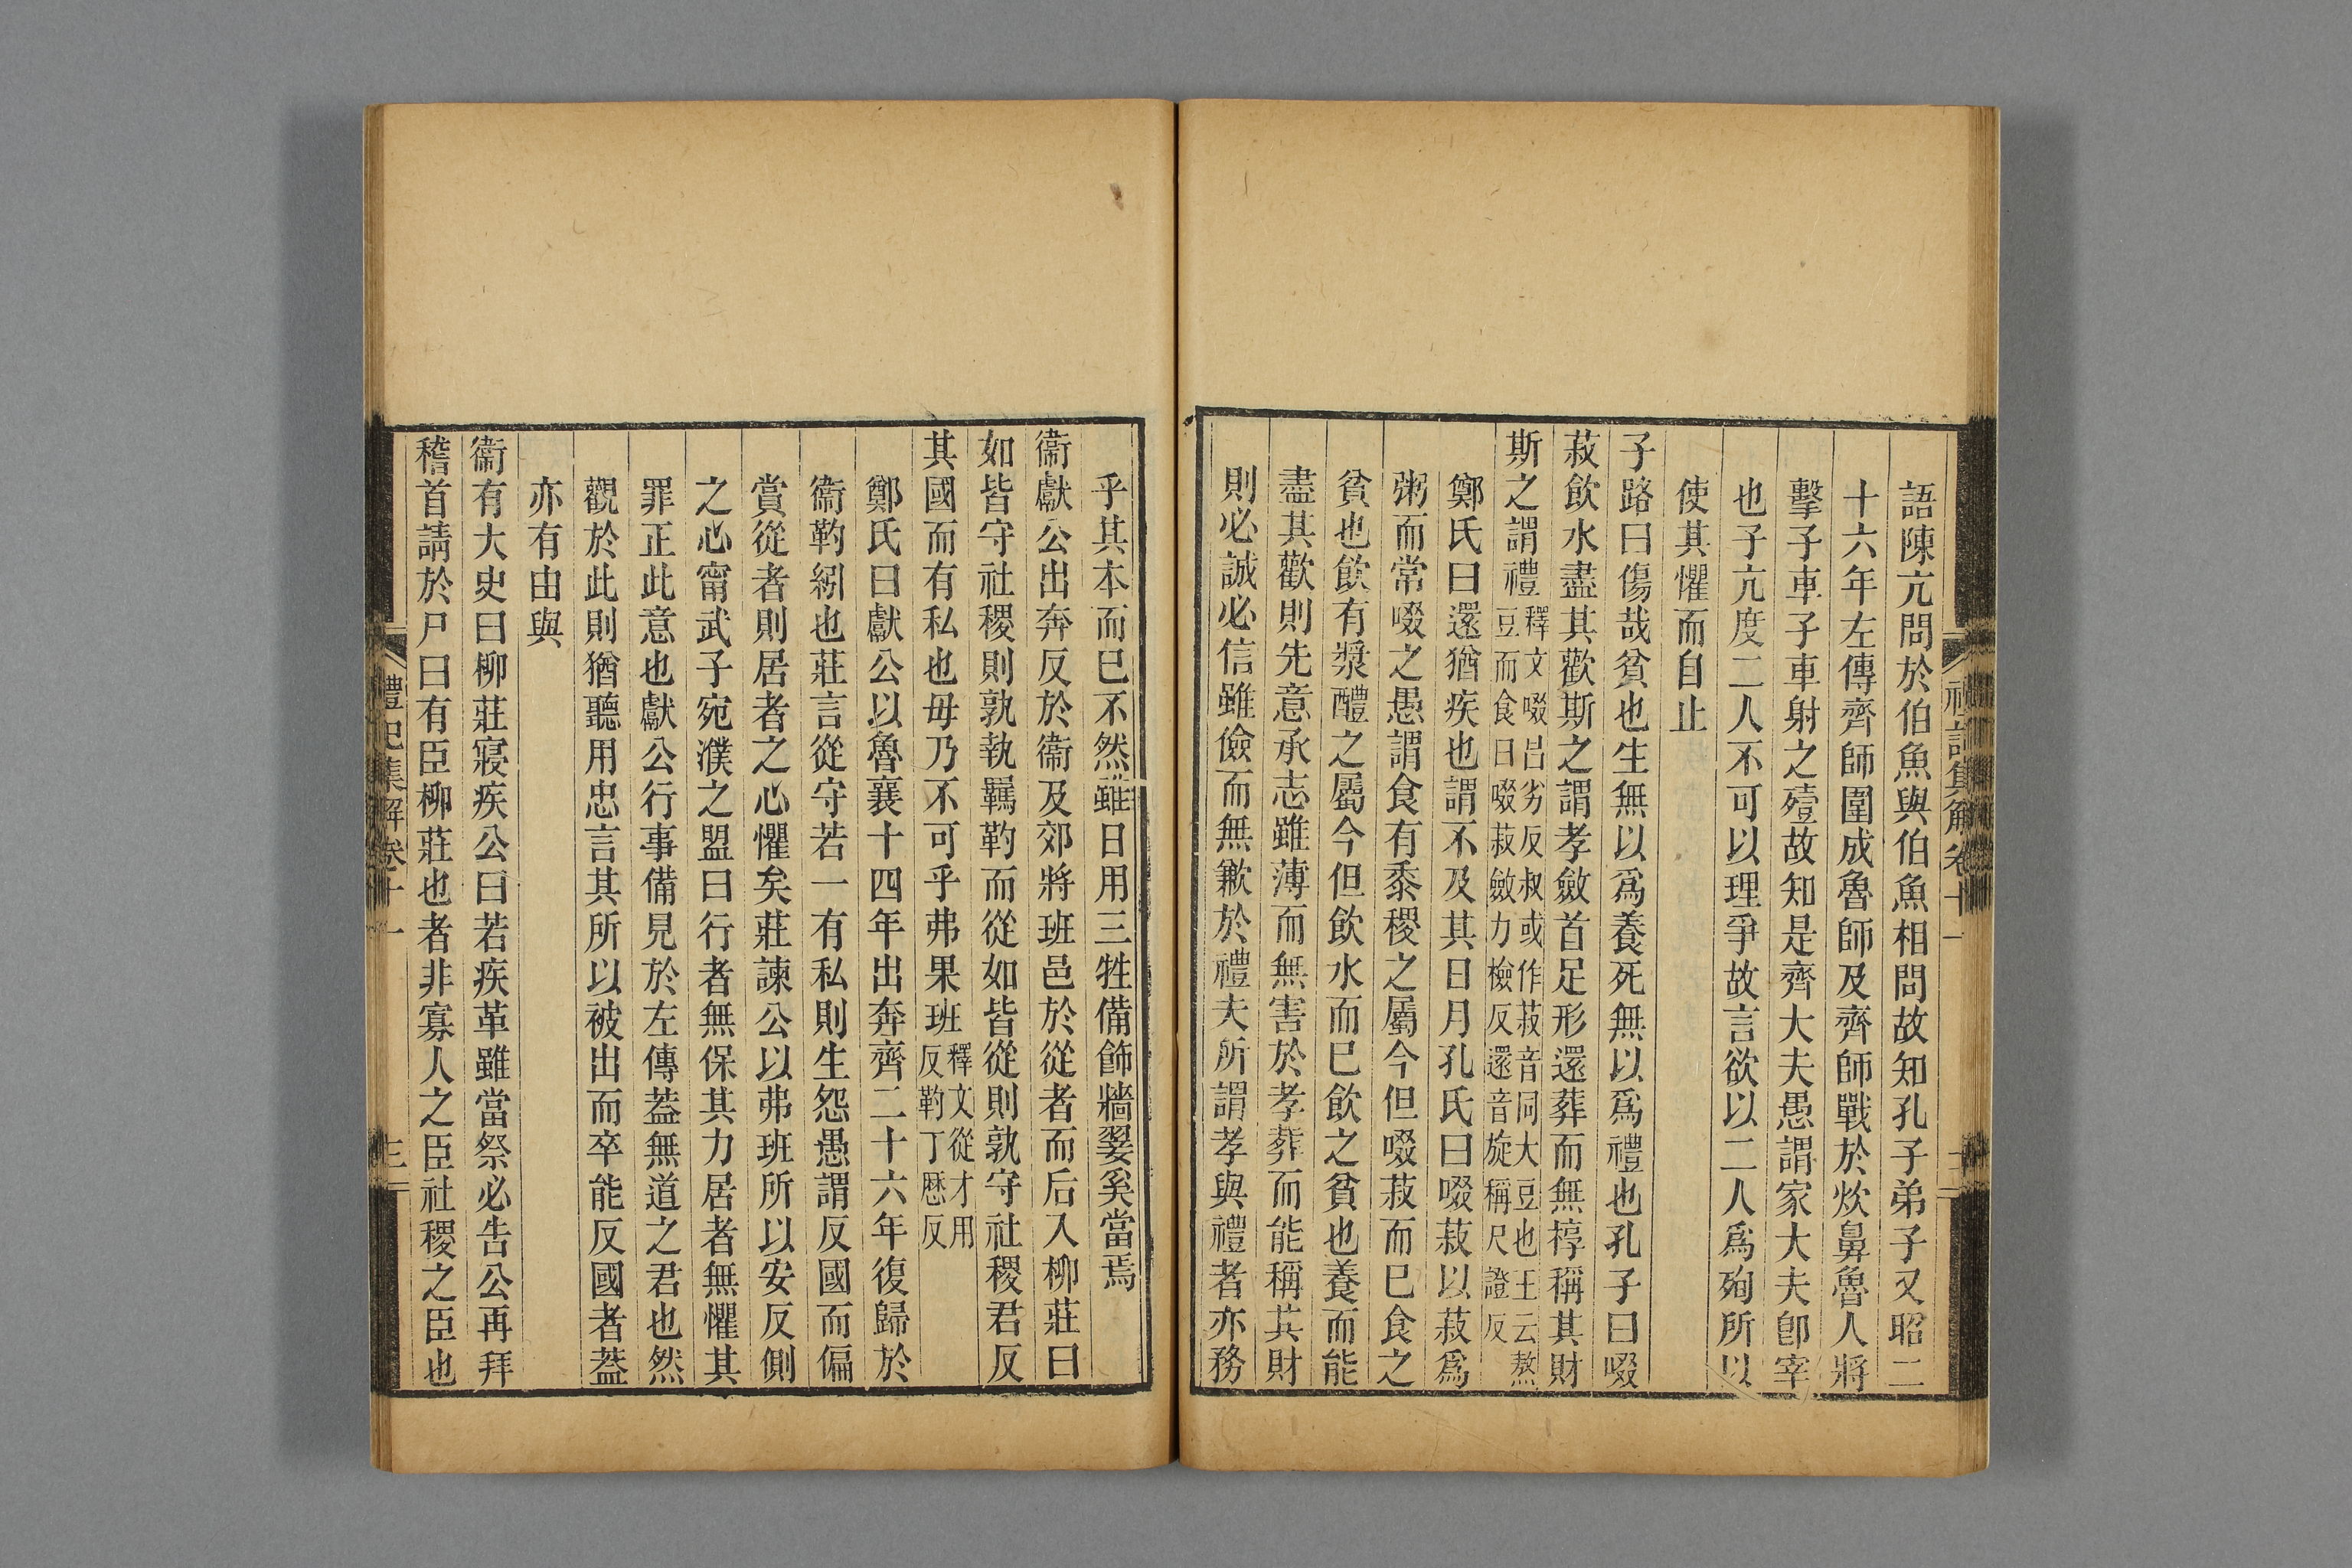 語陳亢問於伯魚與伯魚相問故知孔子弟子又昭二
十六年左傳齊師圍成魯師及齊師戰於炊鼻魯人將
擊子車子車射之殪故知是齊大夫愚謂家大夫卽宰
也子亢度二人不可以理爭故言欲以二人爲殉所以
使其懼而自止
子路曰傷哉貧也生無以爲養死無以爲禮也孔子曰啜
菽飲水盡其歡斯之謂孝斂首足形還葬而無椁稱其財
斯之謂禮
釋文啜昌劣反叔或作菽音同大豆也王云熬
豆而食曰啜菽斂力檢反還音旋稱尺證反
鄭氏曰還猶疾也謂不及其日月孔氏曰啜菽以菽爲
粥而常啜之愚謂食有黍稷之屬今但啜菽而已食之
貧也飲有漿醴之屬今但飲水而已飲之貧也養而能
盡其歡則先意承志雖薄而無害於孝葬而能稱其財
則必誠必信雖儉而無歉於禮夫所謂孝與禮者亦務
禮記集解卷十一
乎其本而已不然雖日用三牲備飾牆翣奚當焉
衞獻公出奔反於衞及郊將班邑於從者而后入柳莊曰
如皆守社稷則孰執羈靮而從如皆從則孰守社稷君反
其國而有私也毋乃不可乎弗果班
釋文從才用
反靮丁歷反
鄭氏曰獻公以魯襄十四年出奔齊二十六年復歸於
衞靮紖也莊言從守若一有私則生怨愚謂反國而偏
賞從者則居者之心懼矣莊諫公以弗班所以安反側
之心甯武子宛濮之盟曰行者無保其力居者無懼其
罪正此意也獻公行事備見於左傳葢無道之君也然
觀於此則猶聽用忠言其所以被出而卒能反國者葢
亦有由與
衞有大史曰柳莊寢疾公曰若疾革雖當祭必告公再拜
稽首請於尸曰有臣柳莊也者非寡人之臣社稷之臣也
禮記集解卷十一